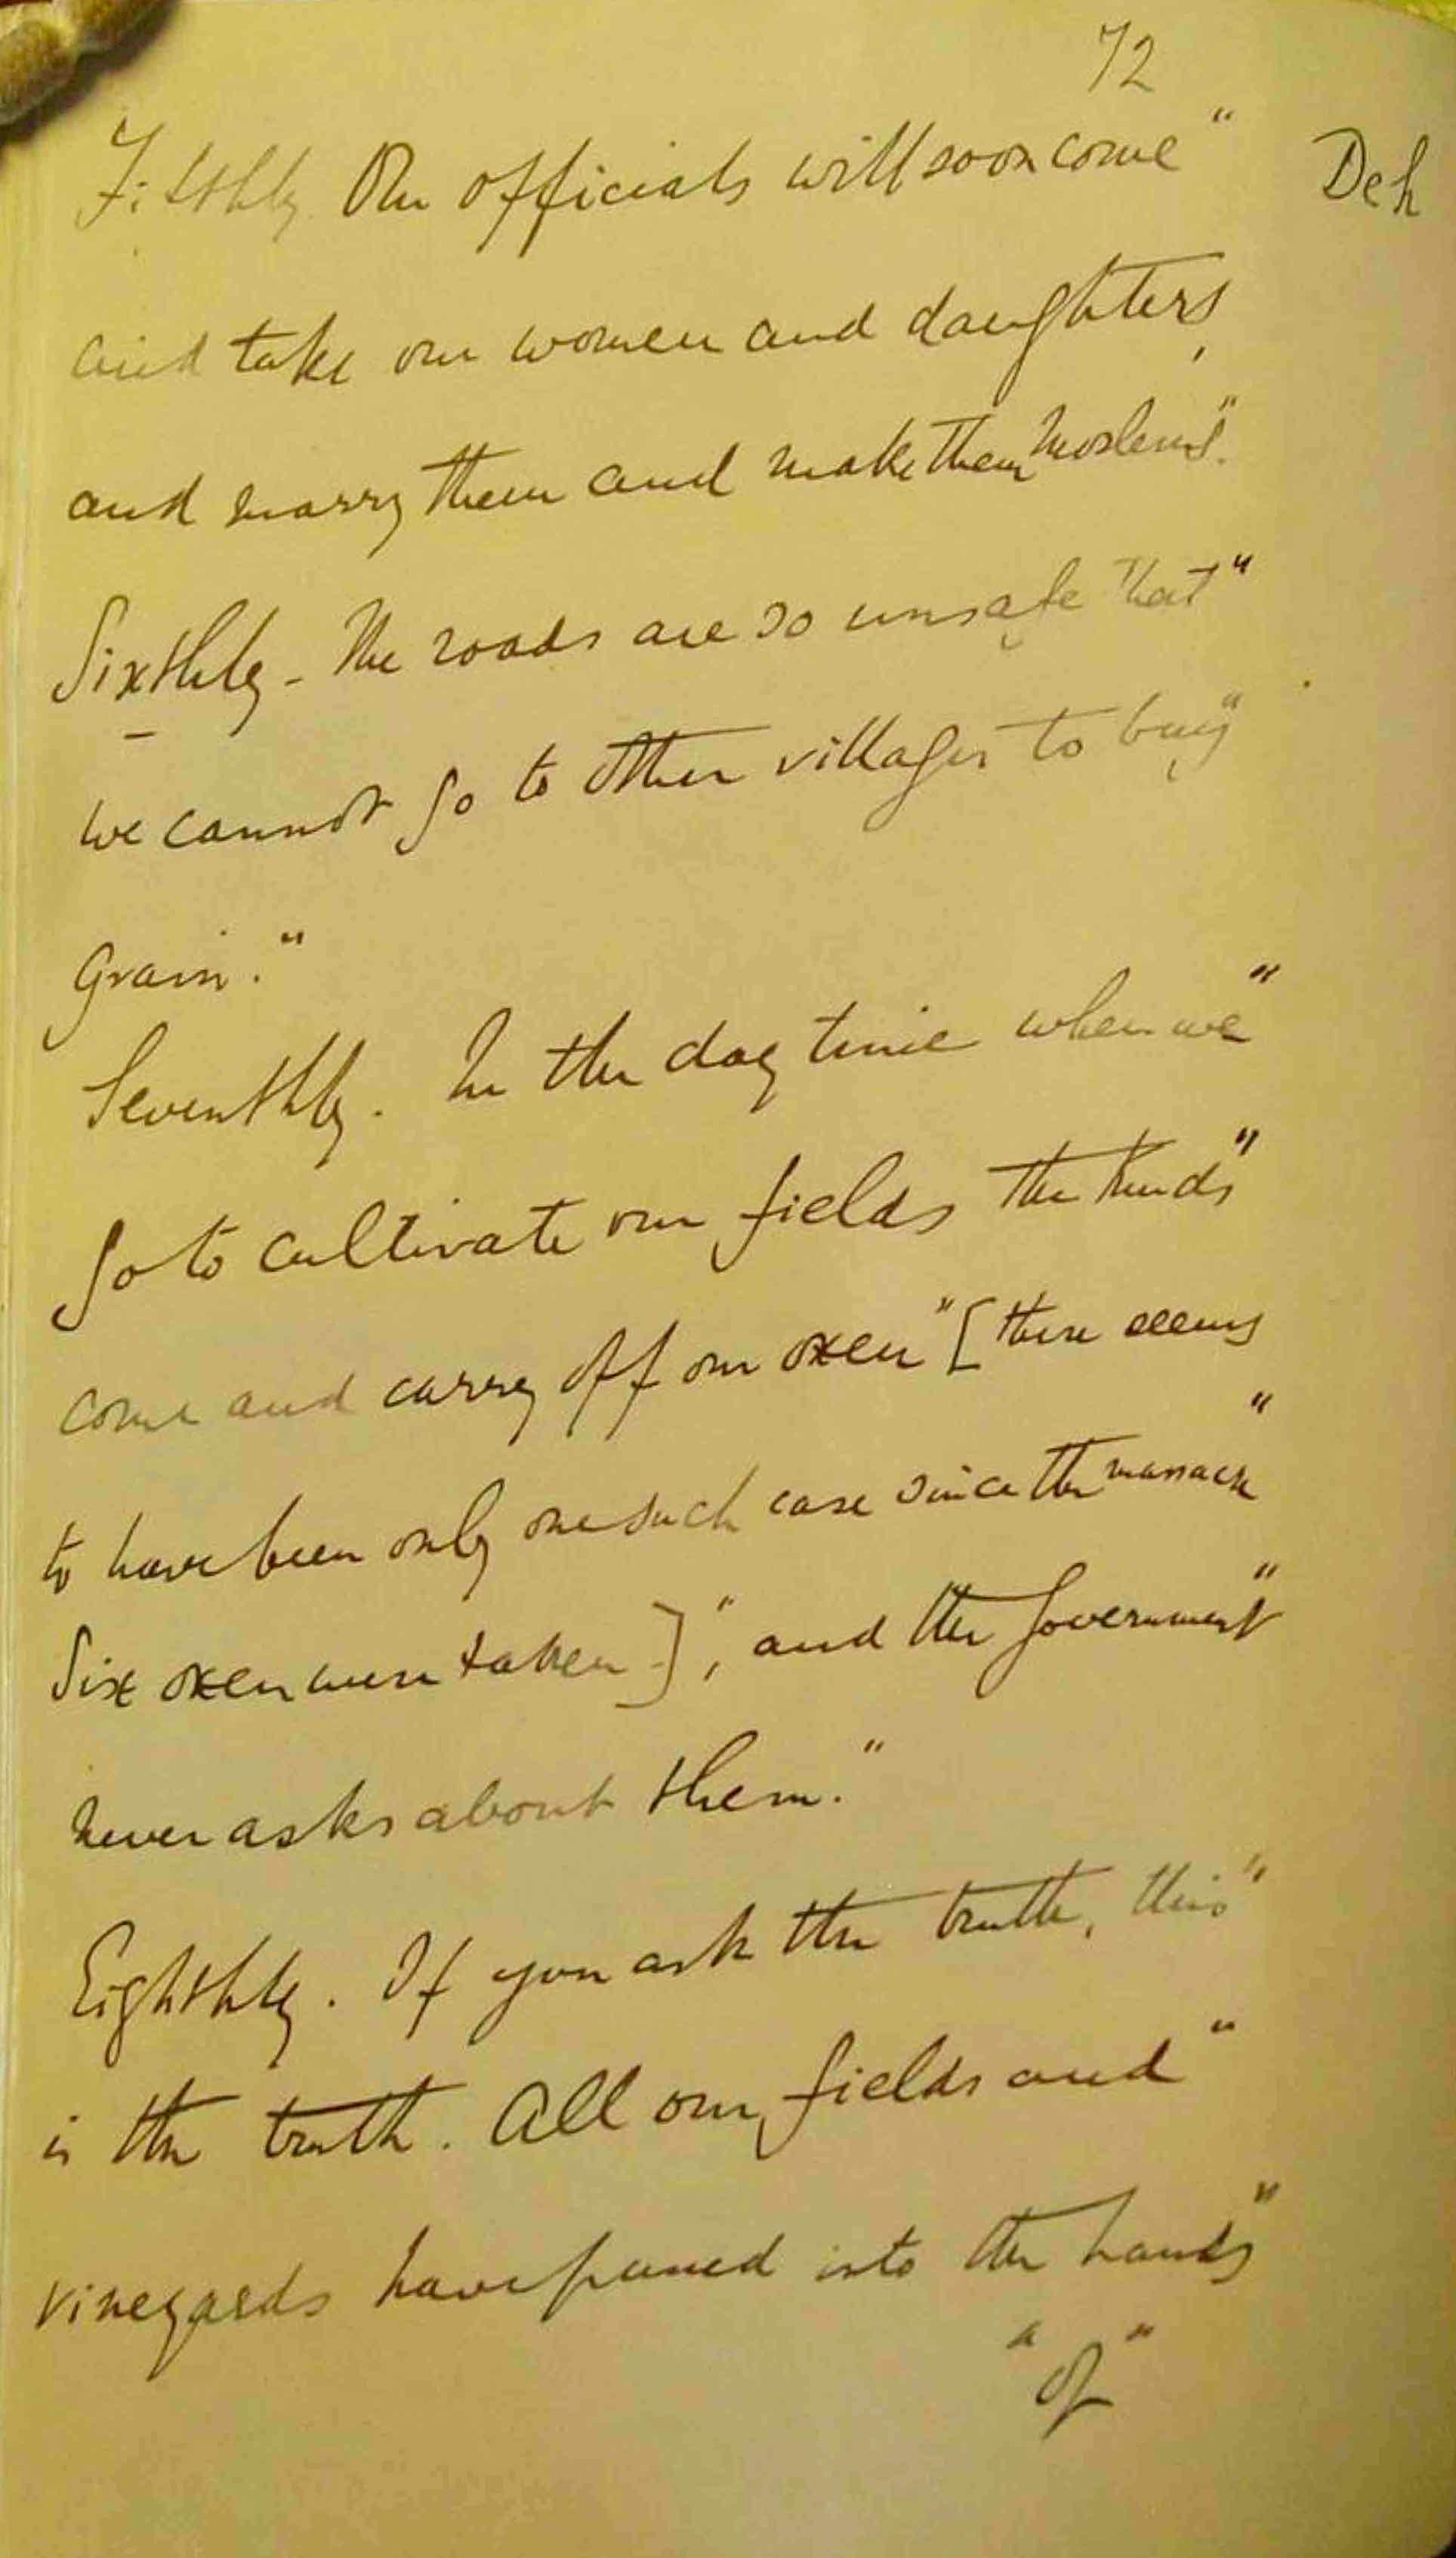 72
Fifthly Our officials will soon come"
Deh
and take our women and daughters,
and marry them and make them Moslems".
Sixthly - The roads are so unsafe that"
we cannot go to other villages to buy"
Grain."
Seventhly. In the day time when we"
go to cultivate our fields the Kurds"
come and carry off our oxen" [there seems
to have been only one such case since the massacre"
Six oxen were taken]", and the Government"
never asks about them."
Eighthly. If you ask the truth, this"
is the truth. All our fields and"
vineyards have passed into the hands"
"of"